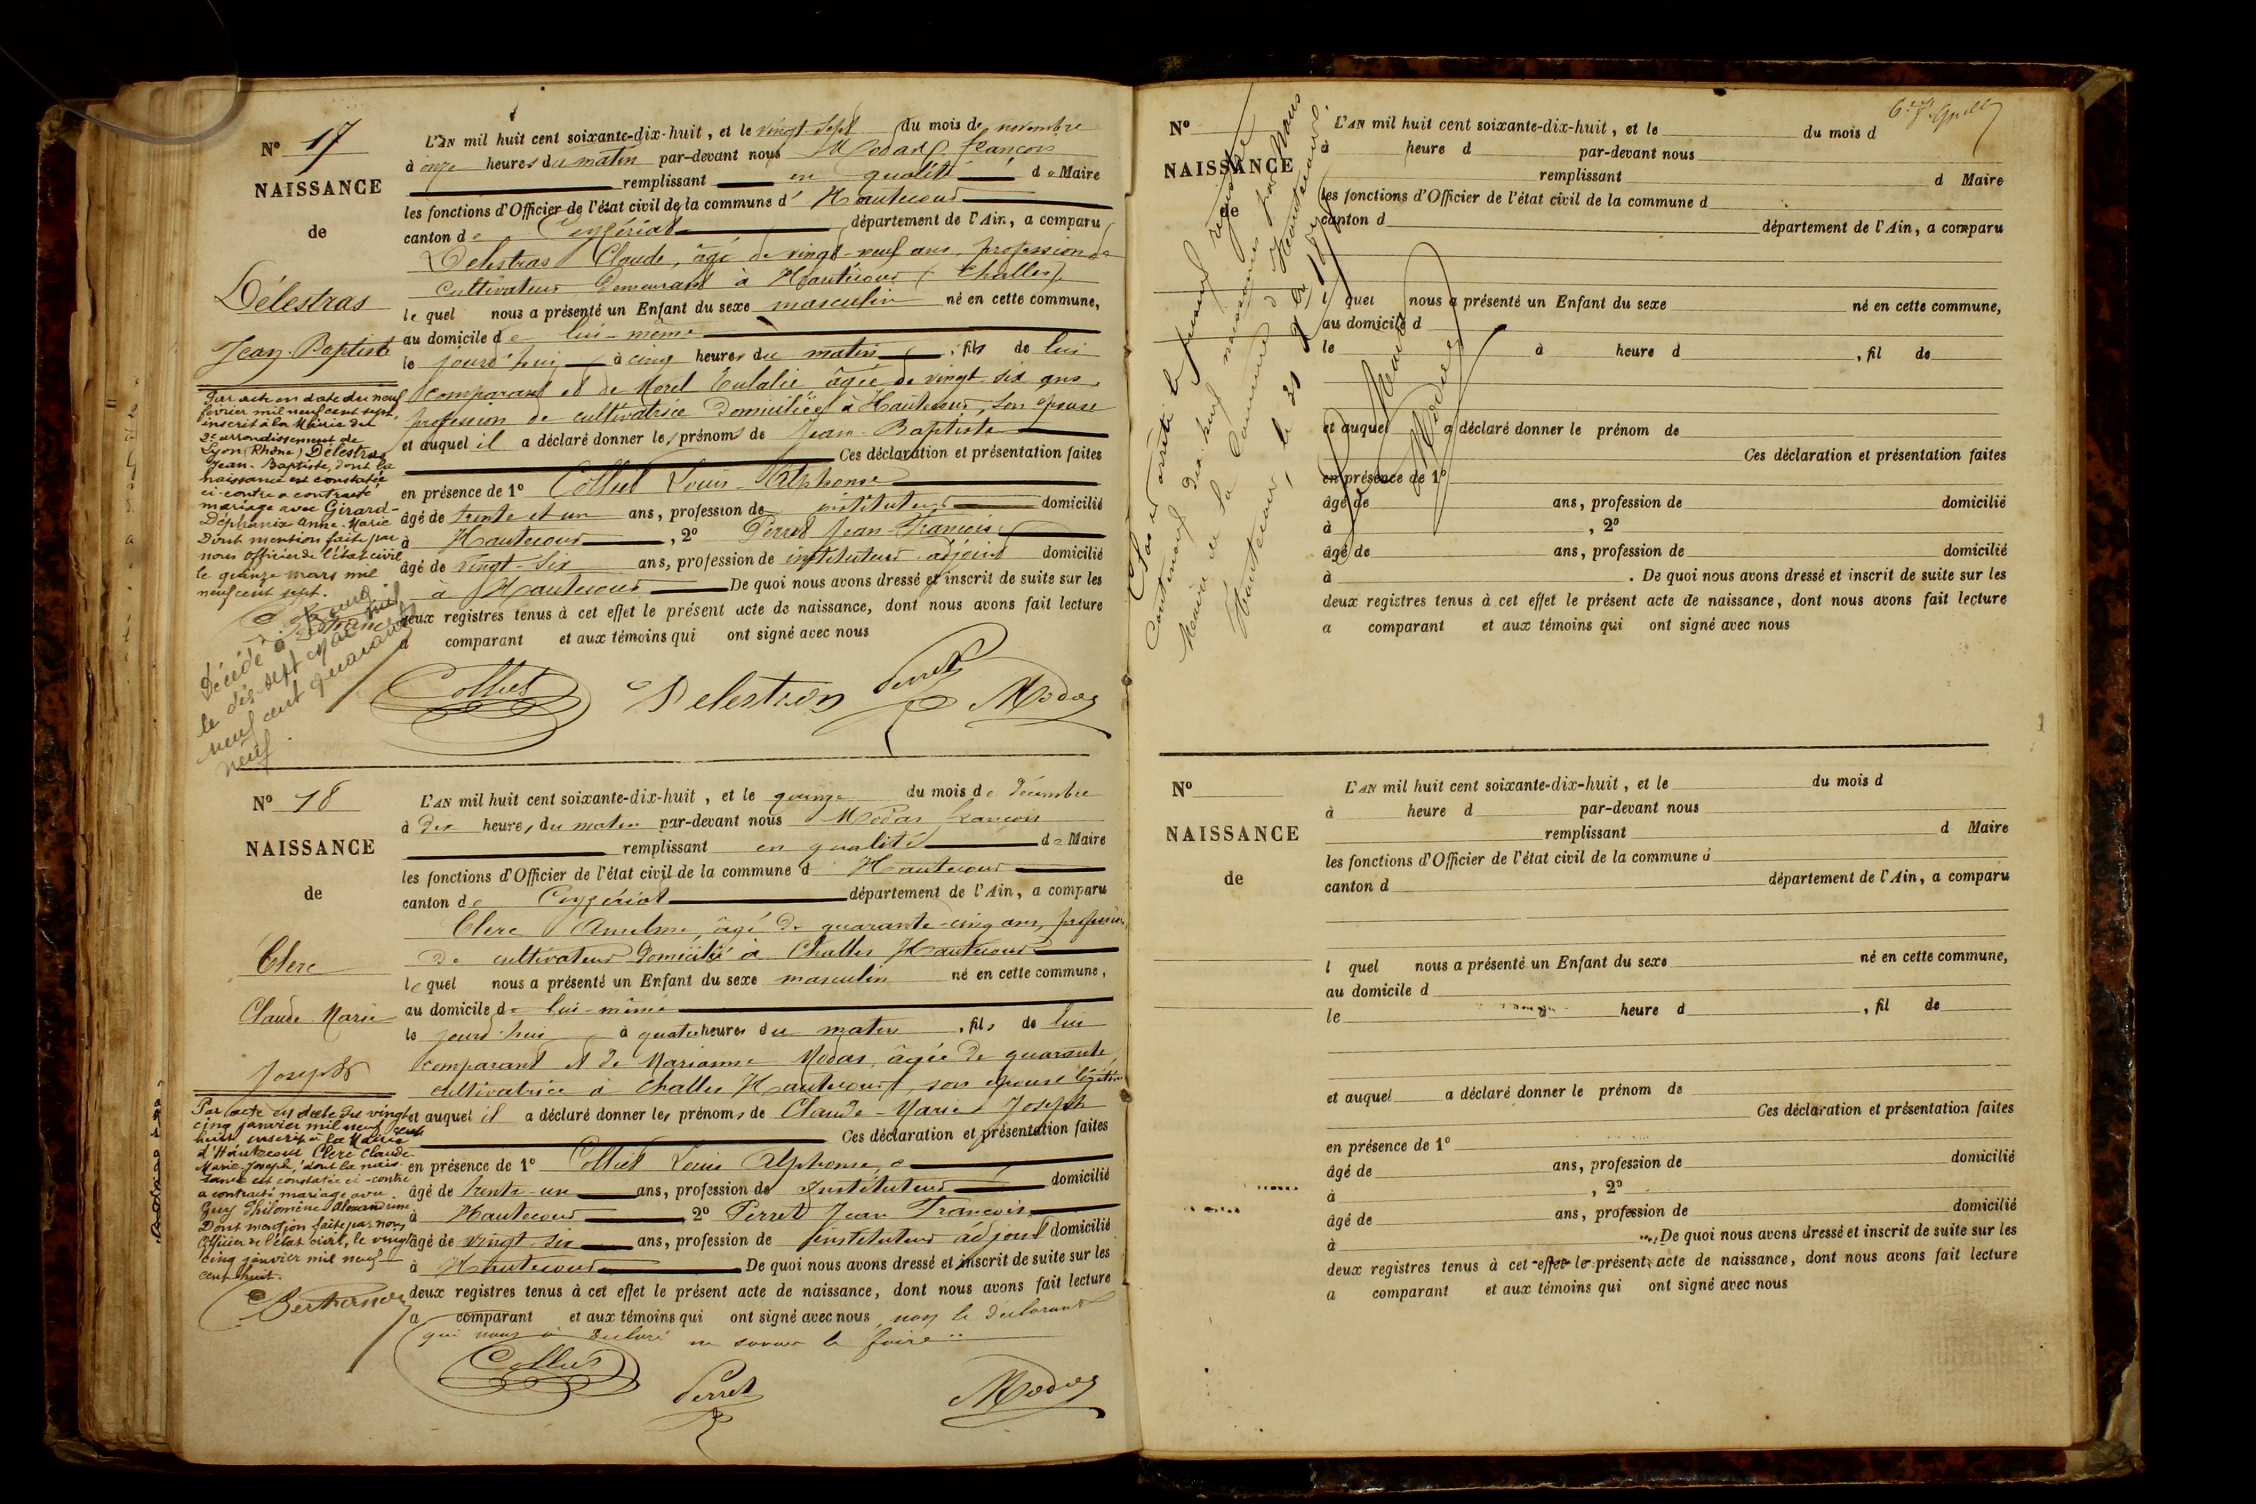 N° 17
NAISSANCE
de
Délestras
Jean-Baptiste
Par acte en date du neuf
février mil neuf cent sept,
inscrit à la Mairie du
2e arrondissement de
Lyon (Rhône) Délestras
Jean-Baptiste, dont la
naissance est constatée
ci-contre a contracté
mariage avec Girard-
Anne-Marie
Dont mention faite par
nous officier de l'état civil
le quinze mars mil
neuf cent sept.
Décédé à Bourg
le dix-sept mai mil
neuf cent quarante
neuf.
L'AN mil huit cent soixante-dix-huit, et le vingt-sept du mois de novembre
à onze heures du matin par-devant nous Modas François
remplissant en qualité de Maire
les fonctions d'Officier de l'état civil de la commune d'Hautecour
canton de Ceyzériat département de l'Ain, a comparu
Delestras Claude, âgé de vingt-neuf ans, profession de
cultivateur demeurant à Hautecour (Challes)
lequel nous a présenté un Enfant du sexe masculin né en cette commune,
au domicile de lui-même
le jourd'hui à cinq heures du matin, fils de lui
comparant et de Morel Eulalie âgée de vingt-six ans,
profession de cultivatrice domiciliée à Hautecour, son épouse
et auquel il a déclaré donner les prénoms de Jean-Baptiste
Ces déclaration et présentation faites
en présence de 1° Colliet Louis Alphonse
âgé de trente et un ans, profession de instituteur domicilié
à Hautecour, 2° Perret Jean-François
âgé de vingt-six ans, profession de instituteur-adjoint domicilié
à Hautecour De quoi nous avons dressé et inscrit de suite sur les
deux registres tenus à cet effet le présent acte de naissance, dont nous avons fait lecture
a comparant et aux témoins qui ont signé avec nous
Colliet Delestras Perret Modas
N° 18
NAISSANCE
de
Clerc
Claude Marie
Joseph
Par acte en date du vingt
cinq janvier mil neuf cent
huit, inscrit à la Mairie
d'Hautecour Clerc Claude
Marie-Joseph, dont la nais-
sance est constatée ci-contre
a contracté mariage avec
Guy Philomène Alexandrine.
Dont mention faite par nous
Officier de l'état civil, le vingt
cinq janvier mil neuf
cent huit.
L'AN mil huit cent soixante-dix-huit, et le quinze du mois de décembre
à dix heures du matin par-devant nous Modas François
remplissant en qualité de Maire
les fonctions d'Officier de l'état civil de la commune d Hautecour
canton de Ceyzériat département de l'Ain, a comparu
Clerc Anselme, âgé de quarante-cinq ans, profession
de cultivateur domicilié à Challes Hautecour
lequel nous a présenté un Enfant du sexe masculin né en cette commune,
au domicile de lui-même
le jourd'hui à quatre heures du matin, fils de lui
comparant et de Marianne Modas, âgée de quarante,
cultivatrice à Challes Hautecour, son épouse légitime
et auquel il a déclaré donner les prénoms de Claude-Marie Joseph
Ces déclaration et présentation faites
en présence de 1° Colliet Louis Alphonse,
âgé de trente-un ans, profession de Instituteur domicilié
à Hautecour 2° Perret Jean François
âgé de vingt-six ans, profession de instituteur adjoint domicilié
à Hautecour De quoi nous avons dressé et inscrit de suite sur les
deux registres tenus à cet effet le présent acte de naissance, dont nous avons fait lecture
a comparant et aux témoins qui ont signé avec nous, non le déclarant
qui nous a déclaré ne savoir le faire
Colliet Perret Modas
N°
NAISSANCE
de
L'AN mil huit cent soixante-dix-huit, et le du mois d
à heure d par-devant nous
remplissant d Maire
les fonctions d'Officier de l'état civil de la commune d
canton d département de l'Ain, a comparu
l quel nous a présenté un Enfant du sexe né en cette commune,
au domicile d
le à heure d , fil de
et auquel a déclaré donner le prénom de
Ces déclaration et présentation faites
en présence de 1°
âgé de ans, profession de domicilié
à , 2°
âgé de ans, profession de domicilié
à . De quoi nous avons dressé et inscrit de suite sur les
deux registres tenus à cet effet le présent acte de naissance, dont nous avons fait lecture
a comparant et aux témoins qui ont signé avec nous
Clos et arrêté le présent registre
contenant dix-huit naissances par Nous
Maire de la Commune d'Hautecour.
Hautecour, le 31 Xbre 1878
Le Maire
Modas
N°
NAISSANCE
de
L'AN mil huit cent soixante-dix-huit, et le du mois d
à heure d par-devant nous
remplissant d Maire
les fonctions d'Officier de l'état civil de la commune d
canton d département de l'Ain, a comparu
l quel nous a présenté un Enfant du sexe né en cette commune,
au domicile d
le à heure d , fil de
et auquel a déclaré donner le prénom de
Ces déclaration et présentation faites
en présence de 1°
âgé de ans, profession de domicilié
à , 2°
âgé de ans, profession de domicilié
à De quoi nous avons dressé et inscrit de suite sur les
deux registres tenus à cet effet le présent acte de naissance, dont nous avons fait lecture
a comparant et aux témoins qui ont signé avec nous